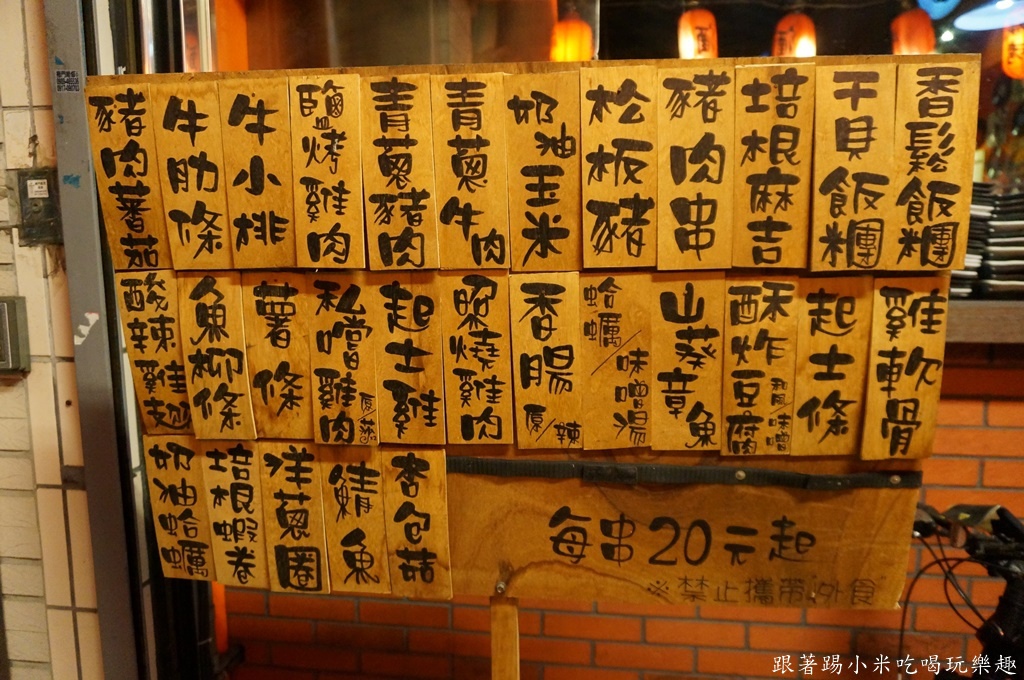 香鬆飯糰
干貝飯糰
培根麻吉
豬肉串
松板豬
奶油玉米
青蔥牛肉
青蔥豬肉
鹽烤雞肉
牛小排
牛肋條
豬肉蕃茄
雞軟骨
起士條
酥炸豆腐 和風/味噌
山葵章魚
蛤蠣/味噌湯
香腸 原/辣
照燒雞肉
起士雞
私噹雞肉
薯條
魚柳條
酸辣雞翅
杏包菇
鯖魚
洋蔥圈
培根蝦卷
奶油蛤蠣
每串20元起
※禁止攜帶外食
跟著踢小米吃喝玩樂趣